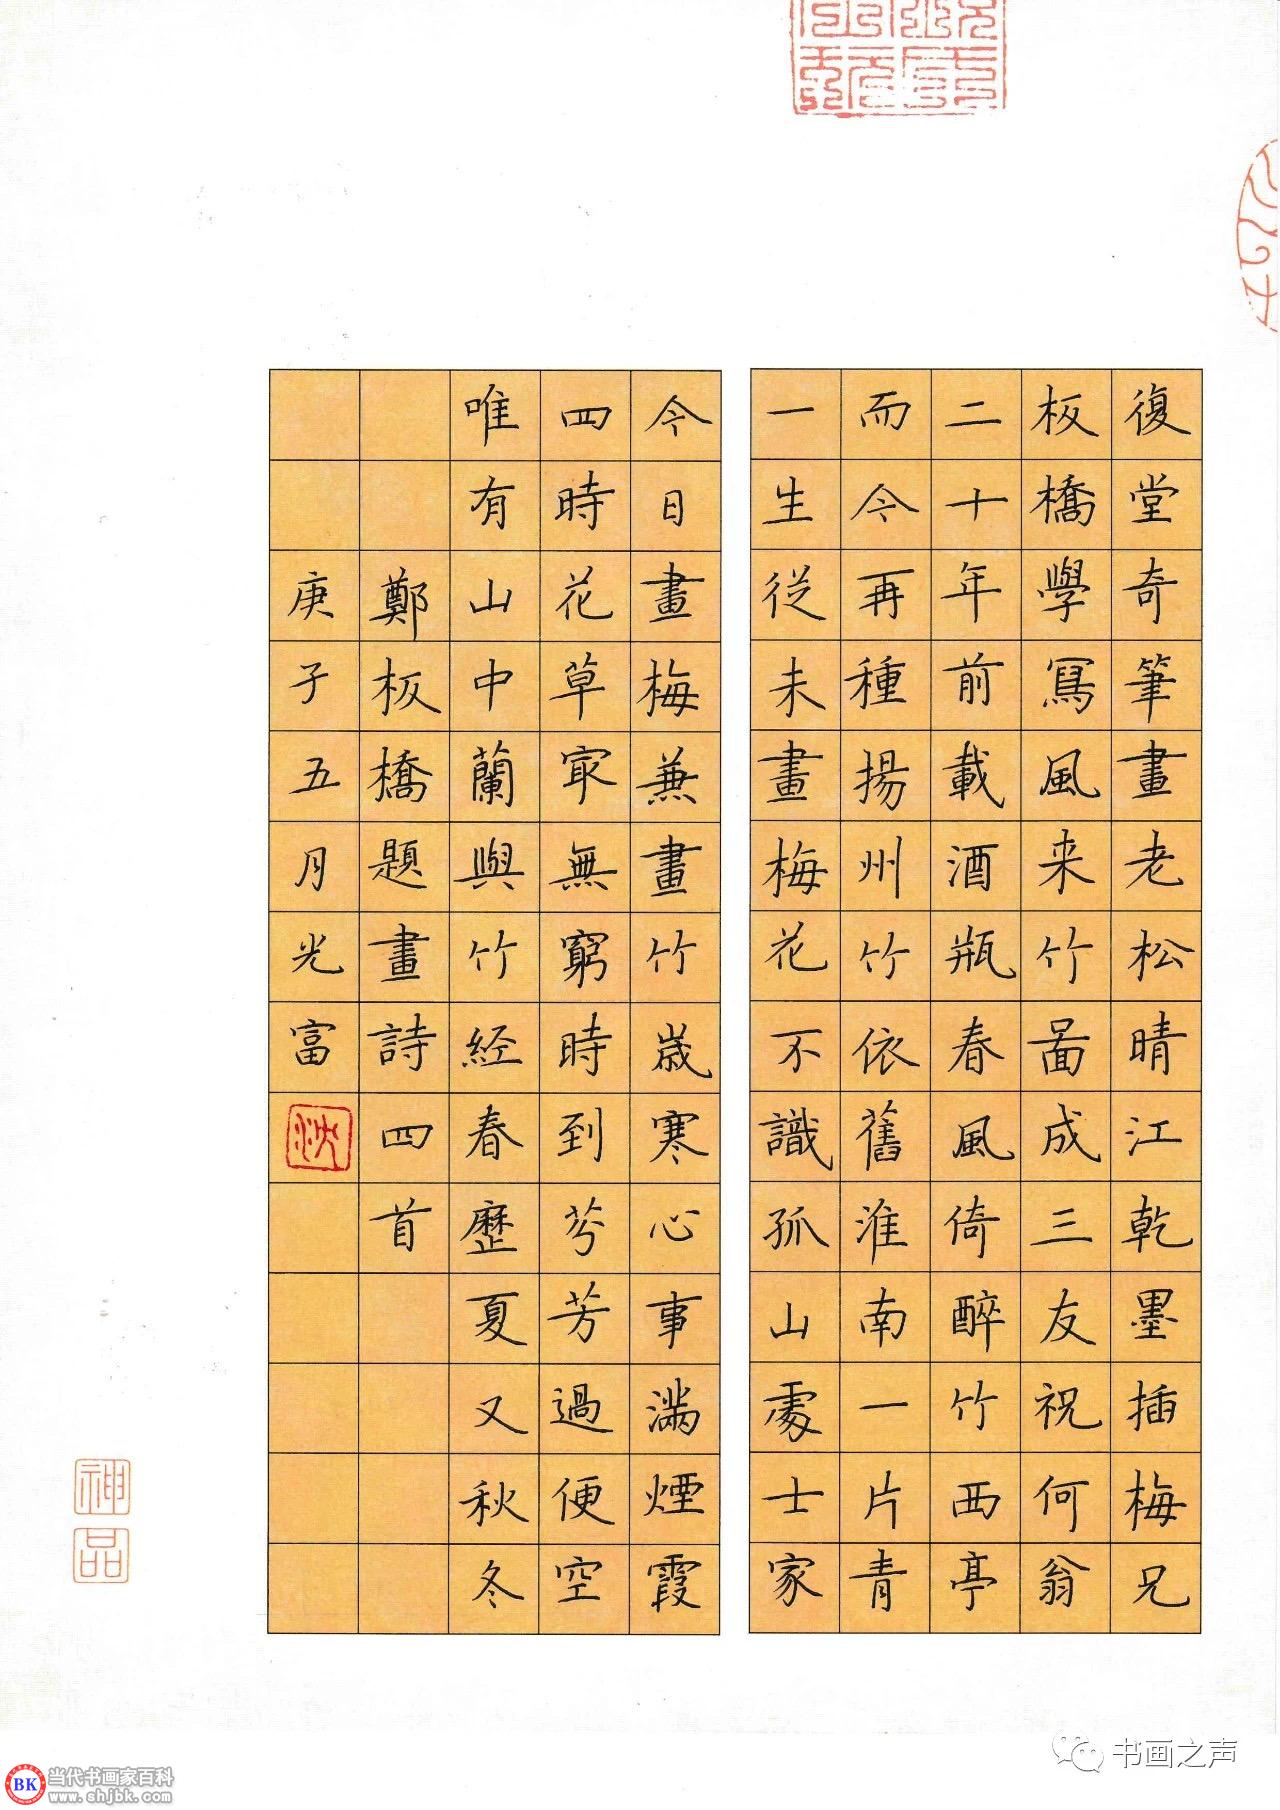 復堂奇筆畫老松晴江乾墨插梅兄
板橋學寫風来竹啚成三友祝何翁
二十年前載酒瓶春風倚醉竹西亭
而今再種揚州竹依舊淮南一片青
一生從未畫梅花不識孤山處士家
今日畫梅兼畫竹歲寒心事滿煙霞
四時花草㝡無窮時到芬芳過便空
唯有山中蘭與竹經春歷夏又秋冬
鄭板橋題畫詩四首
庚子五月光富
神品
书画之声
BK
当代书画家百科
www.shjbk.com